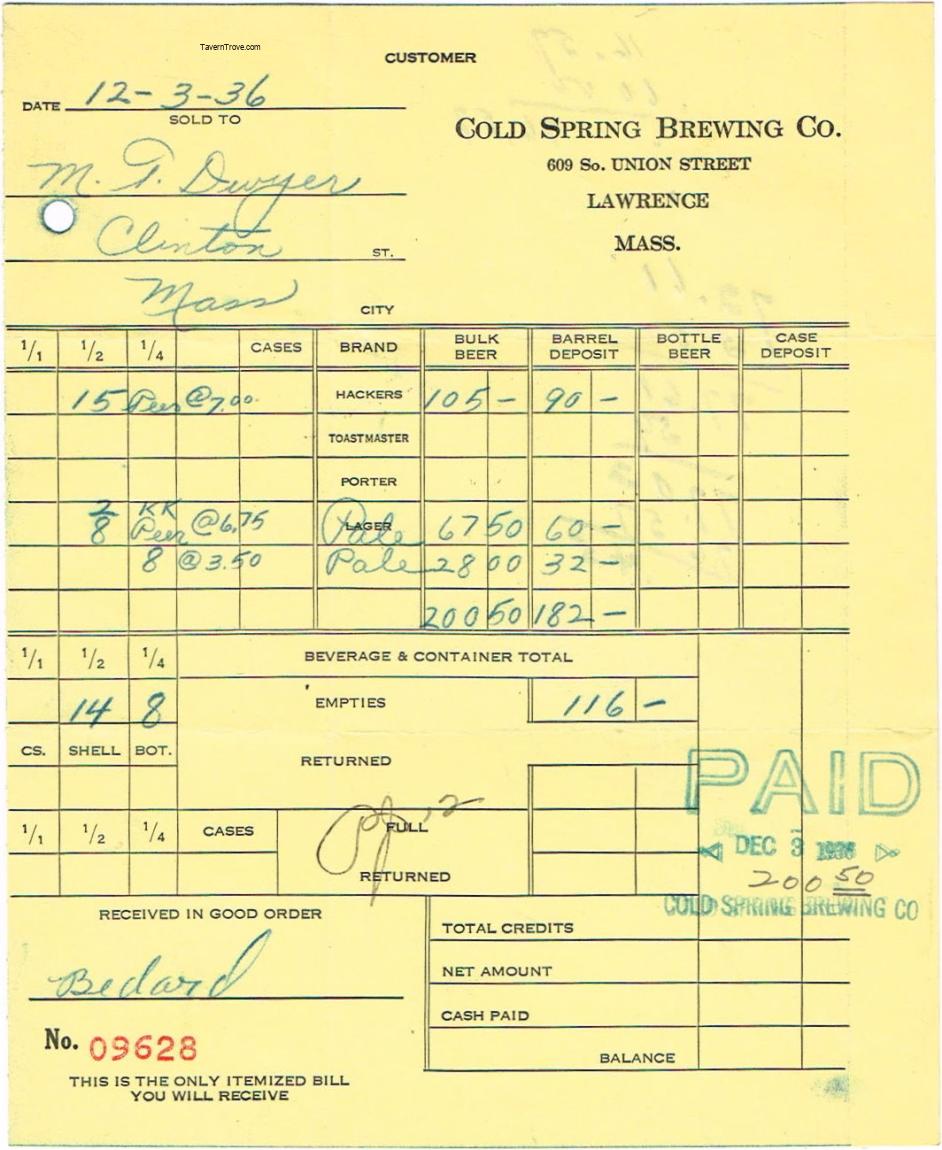 TavernTrove.com
CUSTOMER
DATE 12-3-36
SOLD TO
COLD SPRING BREWING CO.
609 SO. UNION STREET
LAWRENCE
MASS.
M. T. Dwyer
Clinton ST.
Mass CITY
1/1 1/2 1/4 CASES BRAND BULK BEER BARREL DEPOSIT BOTTLE BEER CASE DEPOSIT
15 @7.00 HACKERS 105 - 90 -
TOASTMASTER
PORTER
2 KK
8 @6.75 LAGER Pale 67 50 60 -
8 @3.50 Pale 28 00 32 -
200 50 182 -
1/1 1/2 1/4 BEVERAGE & CONTAINER TOTAL
14 8 EMPTIES 116 -
CS. SHELL BOT. RETURNED
PAID
1/1 1/2 1/4 CASES FULL
DEC 3 1936
RETURNED 200 50
COLD SPRING BREWING CO
RECEIVED IN GOOD ORDER
Bedard
TOTAL CREDITS
NET AMOUNT
CASH PAID
BALANCE
No. 09628
THIS IS THE ONLY ITEMIZED BILL
YOU WILL RECEIVE